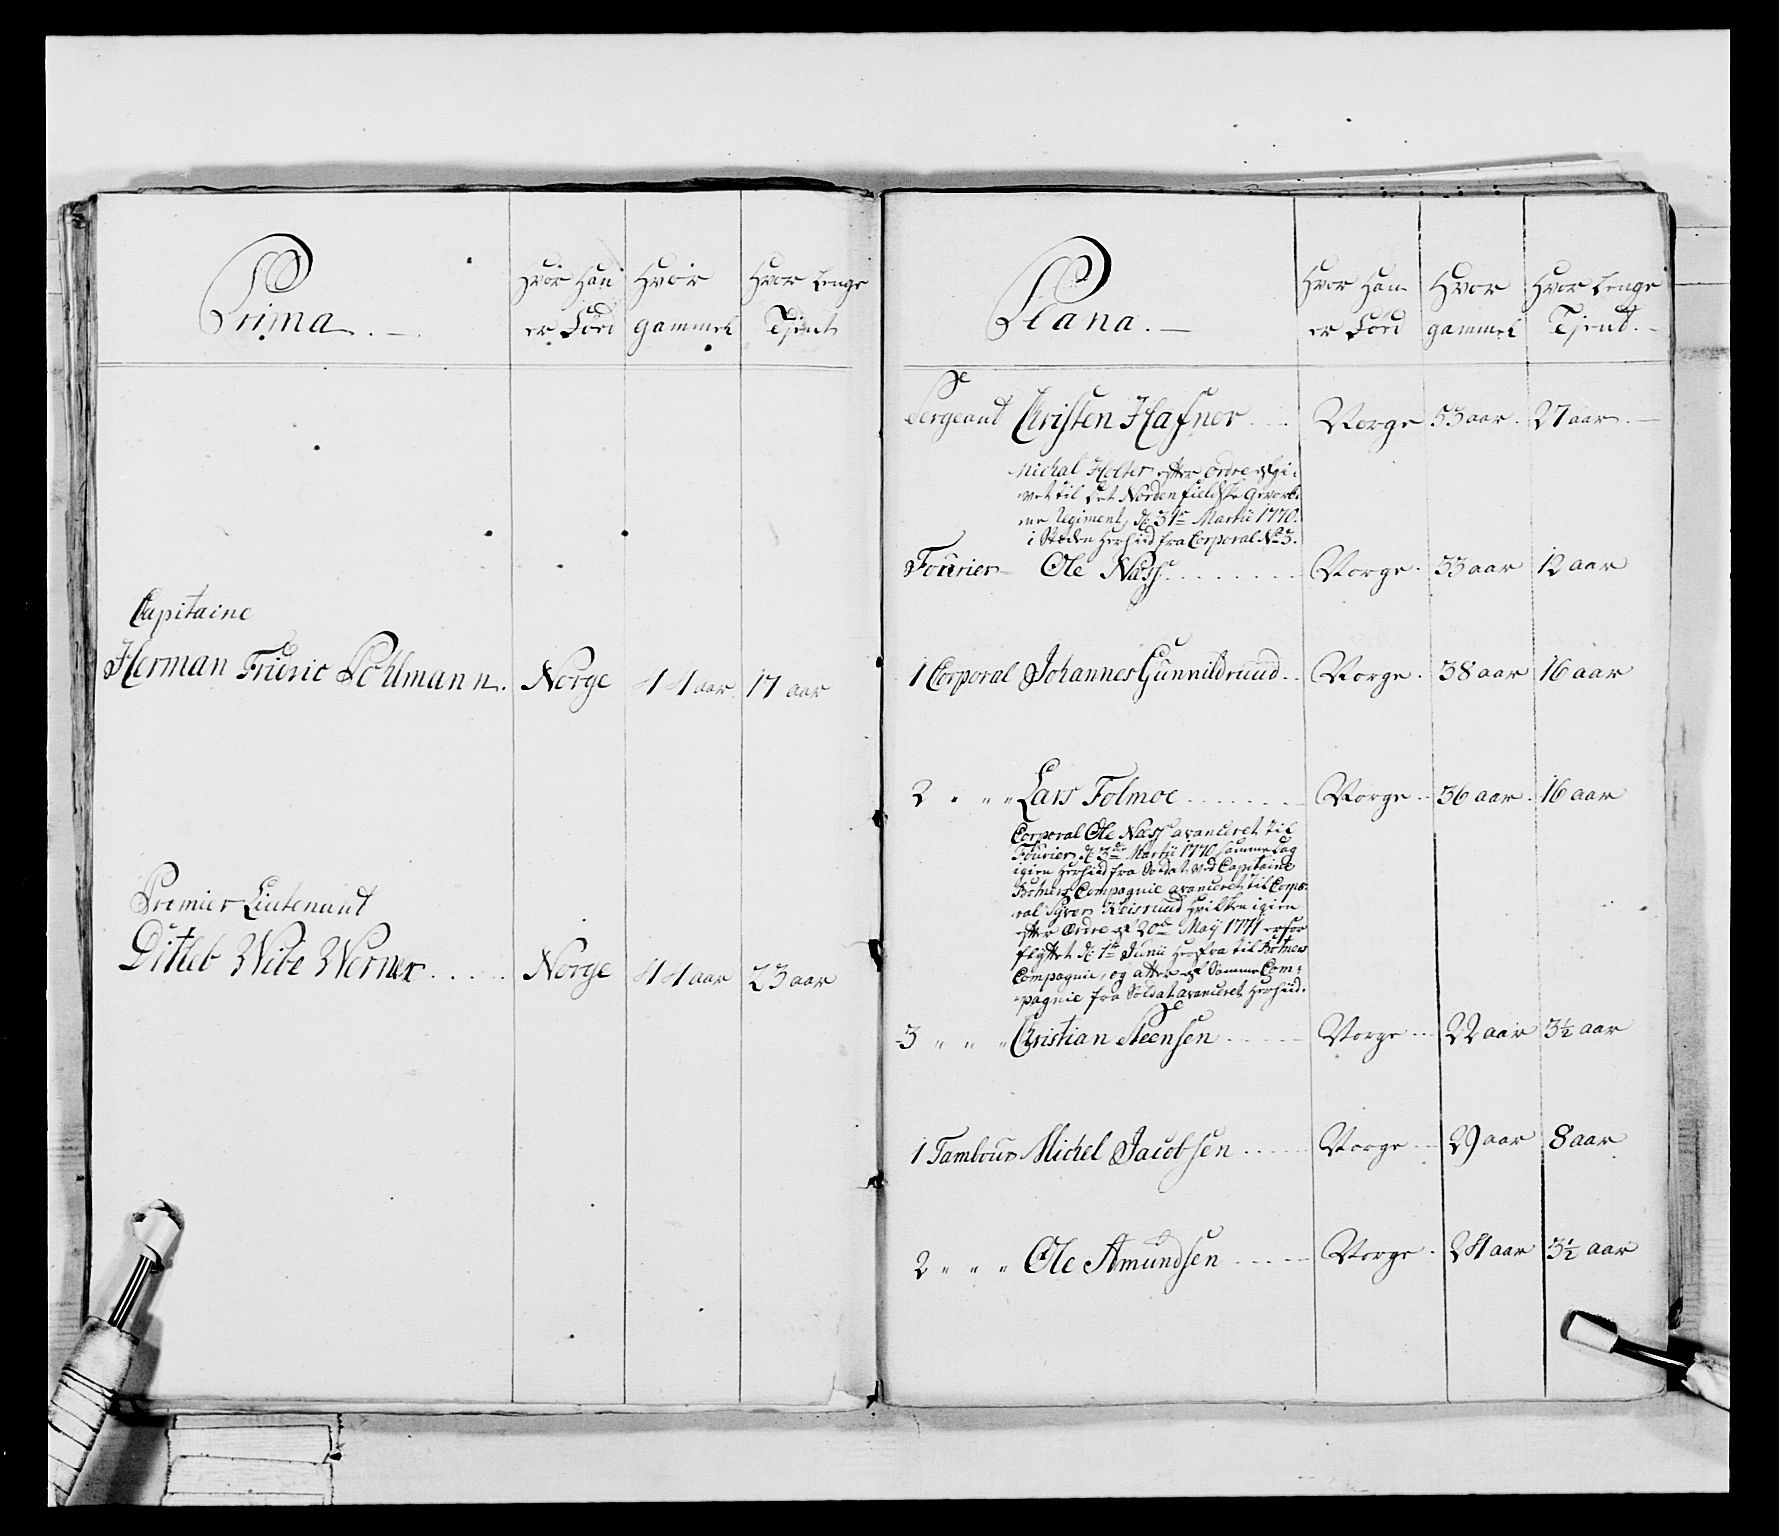 Prima.
Hvor Han er Föed
Hvor gammel
Hvor Lenge Tjent
Capitaine
Herman Frideric Pöhlmann. Norge 44 aar. 17 aar
Premier Lieutenant
Ditleb Wibe Werner..... Norge 44 aar 23 aar
Plana.
Hvor Han er Föed
Hvor gammel
Hvor Lenge Tjent.
Sergeant Christen Hafner... Norge 53 aar. 27 aar.
Michal Holter efter ordre afgi-
vet til det Nordenfieldske Gevorbe-
ne Regiment, d. 31te Martii 1770.
i Steden Herhid fra Corporal No 3.
Fourier Ole Næss........ Norge. 33 aar 12 aar
1 Corporal Johannes Gunnildrund.. Norge. 38 aar 16 aar
2 " " " Lars Tolmoe....... Norge.. 36 aar. 16 aar
Corporal Ole Næss avanceret til
Fourier d. 3die Martii 1770 samme Dag
igien Herhid fra Soldat ved Capitaine
Botners Compagnie avanceret til Corpo-
ral Syver Reisrund hvilken igien
efter Ordre af 20de Maij 1771 er for
flyttet d. 1te Junii Herfra til Botners
Compagnie, og atter af Samme Com-
pagnie fra Soldat avanceret Herhid.
3 " " " Christian Steensen..... Norge... 22 aar 3½ aar
1 Tambour Michel Jacobsen..... Norge... 29 aar 8 aar
2 " " " Ole Amundsen..... Norge. 24 aar 3½ aar